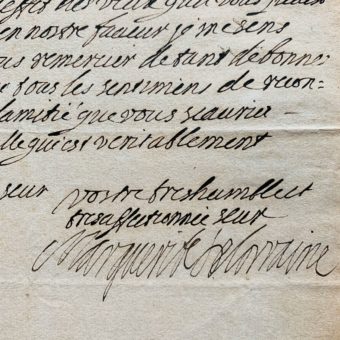 effet des vœux que vous faites
en nostre faueur je me sens
us remercier de tant de bonne
e tous les sentimens de recon=
lamitié que vous scauries
lle qui est veritablement
seur
vostre treshumble et
tresaffectionnée seur
Marguerite de lorraine